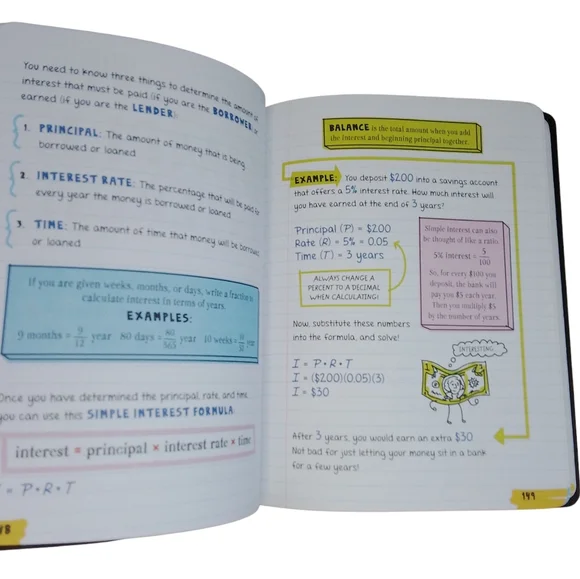 You need to know three things to determine the amount of
interest that must be paid (if you are the BORROWER) or
earned (if you are the LENDER):
1. PRINCIPAL: The amount of money that is being
borrowed or loaned
2. INTEREST RATE: The percentage that will be paid for
every year the money is borrowed or loaned
3. TIME: The amount of time that money will be borrowed
or loaned
If you are given weeks, months, or days, write a fraction to
calculate interest in terms of years.
EXAMPLES:
9 months = 9/12 year 80 days = 80/365 year 10 weeks =
Once you have determined the principal, rate, and time,
you can use this SIMPLE INTEREST FORMULA:
interest = principal × interest rate × time
I = P • R • T
BALANCE is the total amount when you add
the interest and beginning principal together.
EXAMPLE: You deposit $200 into a savings account
that offers a 5% interest rate. How much interest will
you have earned at the end of 3 years?
Principal (P) = $200
Rate (R) = 5% = 0.05
Time (T) = 3 years
ALWAYS CHANGE A
PERCENT TO A DECIMAL
WHEN CALCULATING!
Simple interest can also
be thought of like a ratio.
5% interest = 5/100
So, for every $100 you
deposit, the bank will
pay you $5 each year.
Then you multiply $5
by the number of years.
Now, substitute these numbers
into the formula, and solve!
I = P • R • T
I = ($200)(0.05)(3)
I = $30
INTERESTING.
After 3 years, you would earn an extra $30
Not bad for just letting your money sit in a bank
for a few years!
149